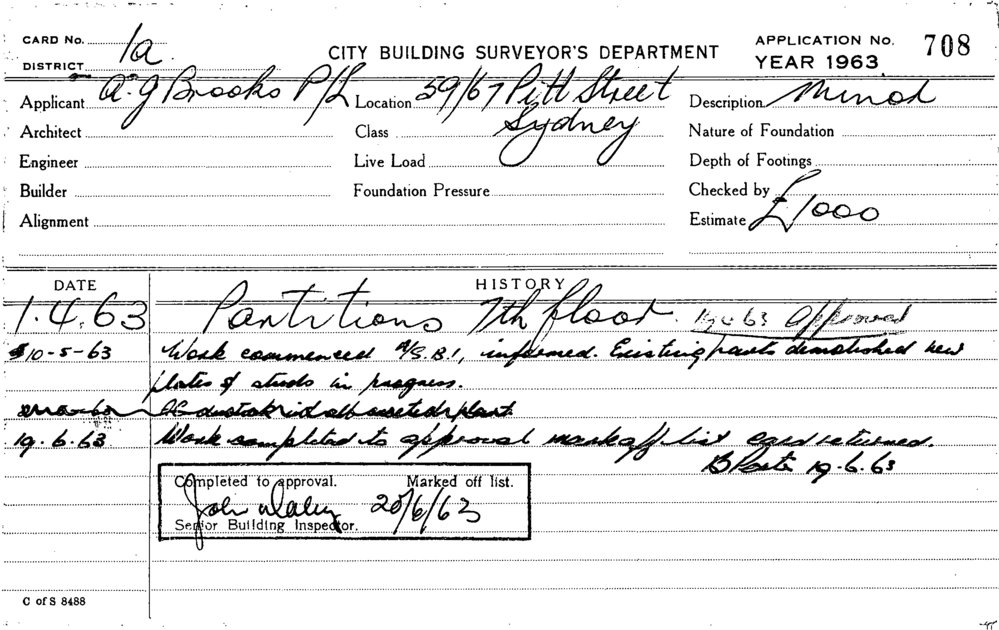 CARD No. 1a
CITY BUILDING SURVEYOR'S DEPARTMENT
APPLICATION No. 708
DISTRICT
YEAR 1963
Applicant A. G Brooks P/L
Location 59/67 Pitt Street
Sydney
Description Minor
Architect
Class
Nature of Foundation
Engineer
Live Load
Depth of Footings
Builder
Foundation Pressure
Checked by
Alignment
Estimate £1000
DATE
HISTORY
1.4.63 Partitions 7th floor. Approved
10-5-63 Work commenced A/S.B.I, informed. Existing parts demolished new
plates & studs in progress.
19.6.63 Work completed to approval mark off list card returned.
19.6.63
Completed to approval. Marked off list.
John 20/6/63
Senior Building Inspector.
C of S 8488